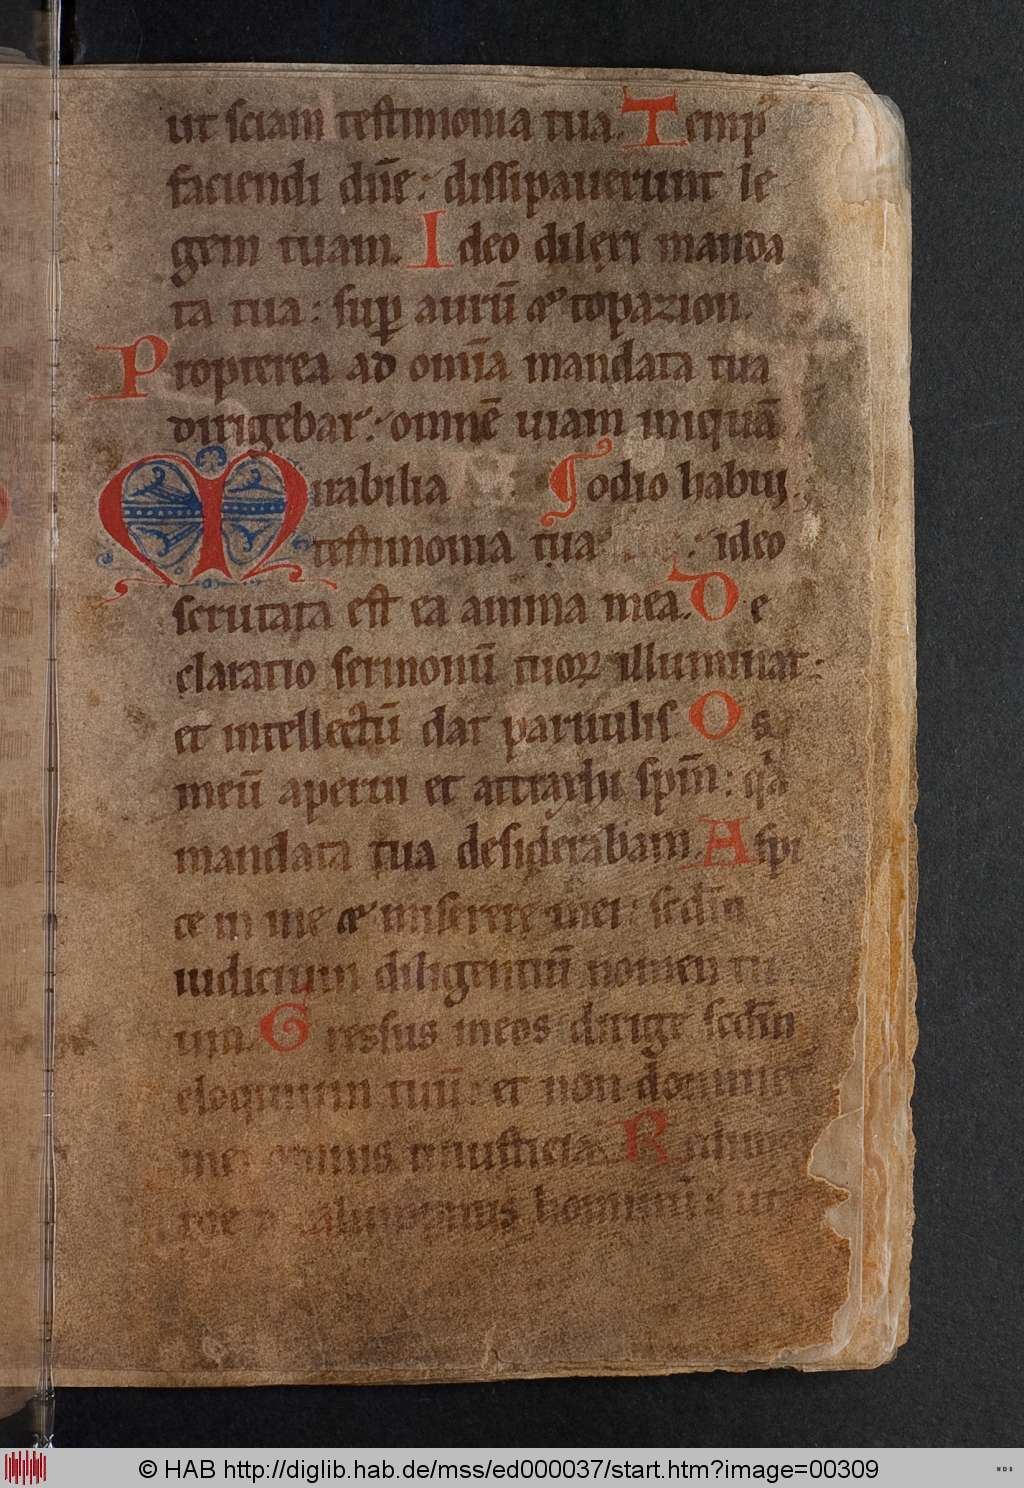 ut sciam testimonia tua. Temp
faciendi dn̄e: dissipauerunt le
gem tuam. Ideo dilexi manda
ta tua: sup̱ aurū ⁊ topazion.
Propterea ad om̄ia mandata tua
dirigebar: omnē uiam iniquā
Mirabilia odio habui.
testimonia tua: ideo
scrutata est ea anima mea. De
claratio sermonū tuoꝝ illuminat:
et intellectū dat paruulis. Os
meū aperui et attraxi sp̄m: q̇a
mandata tua desiderabam. Aspi
ce in me ⁊ miserere mei: scd̄m
iudicium diligentiū nomen tu
um. Gressus meos dirige scd̄m
eloquium tuū: et non dominet
mei omnis iniusticia. Redime
me a calumpniis hominū: ut
© HAB http://diglib.hab.de/mss/ed000037/start.htm?image=00309